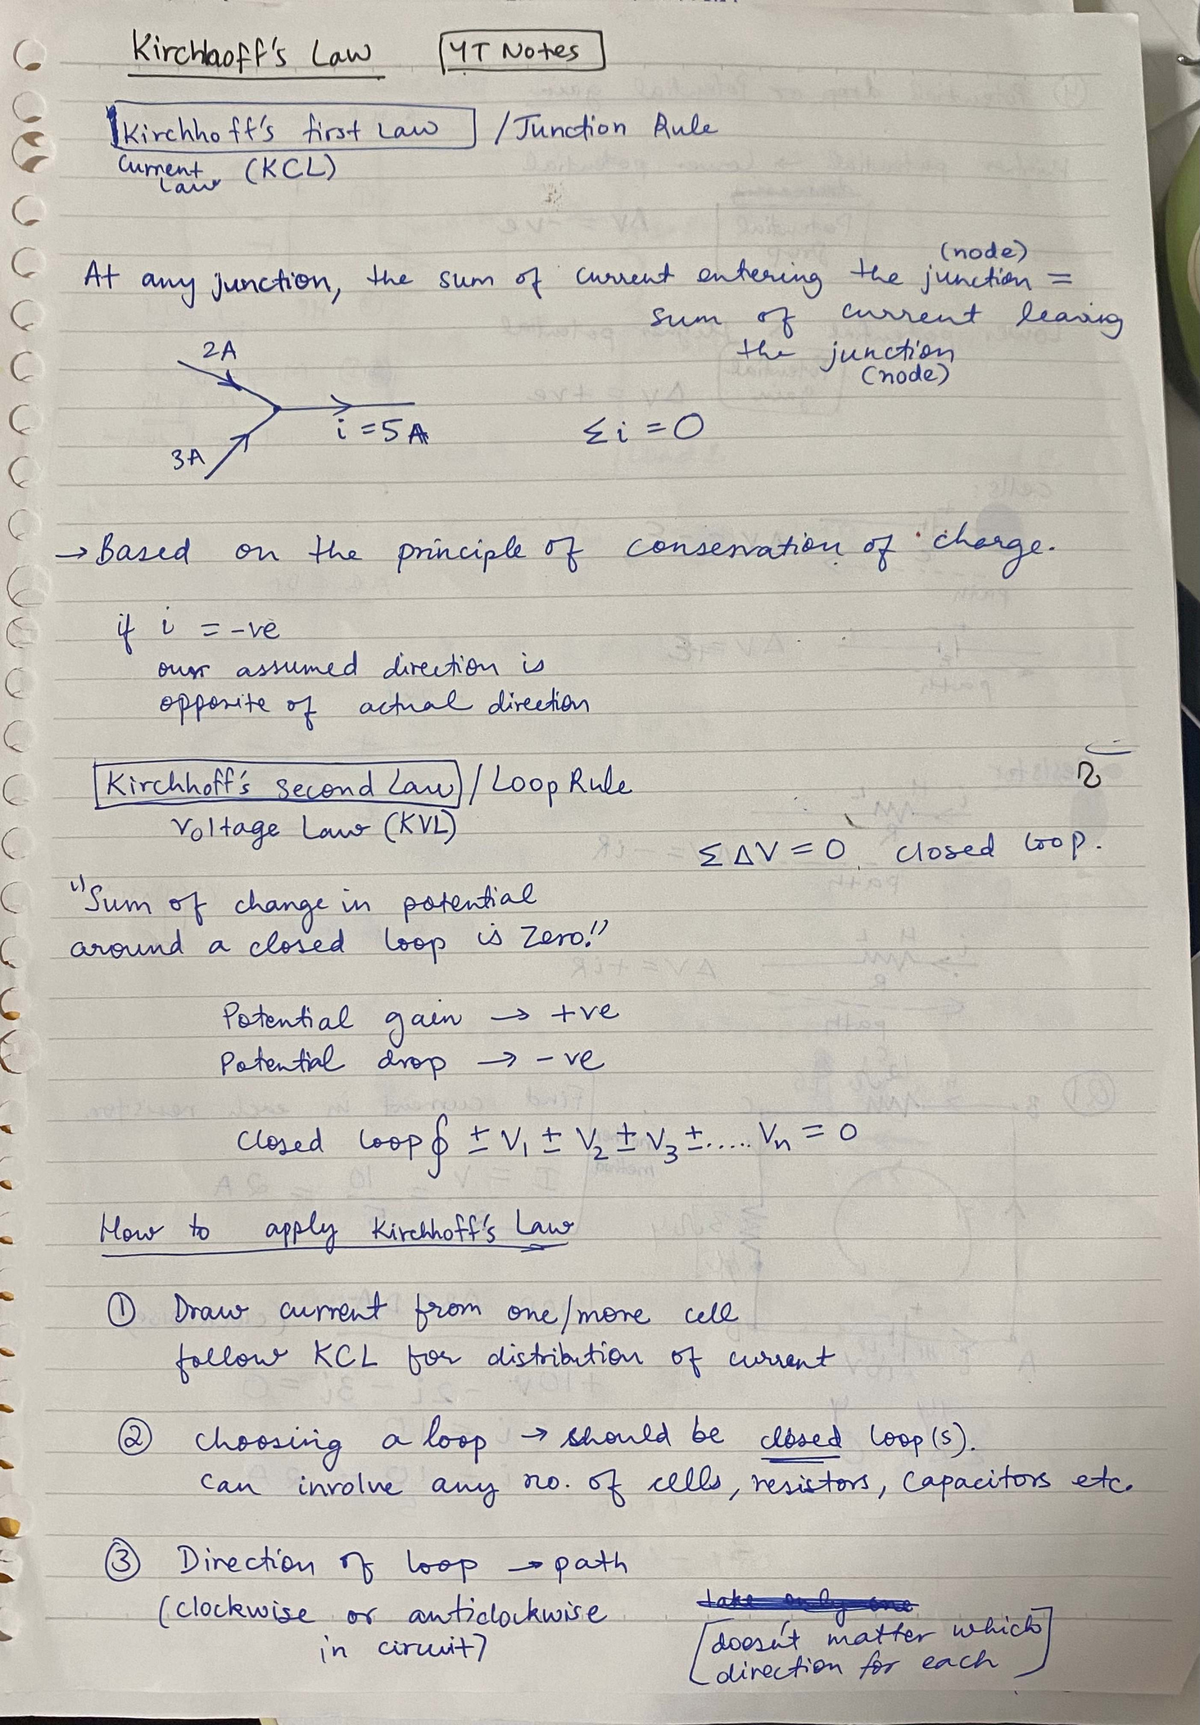 Kirchhoff's Law YT Notes
Kirchhoff's first Law / Junction Rule
Current Law (KCL)
(node)
At any junction, the sum of current entering the junction =
sum of current leaving
the junction
(node)
2A
i = 5A
3A
Σi = 0
→ Based on the principle of conservation of charge.
if i = -ve
our assumed direction is
opposite of actual direction
Kirchhoff's Second Law / Loop Rule
Voltage Law (KVL)
ΣΔV = 0 closed loop.
"Sum of change in potential
around a closed loop is zero."
Potential gain → +ve
Potential drop → -ve
Closed loop ∮ ± V₁ ± V₂ ± V₃ ± ..... Vₙ = 0
How to apply Kirchhoff's Law
① Draw current from one/more cell
follow KCL for distribution of current
② Choosing a loop → should be closed loop(s).
Can involve any no. of cells, resistors, capacitors etc.
③ Direction of loop → path
(clockwise or anticlockwise
in circuit)
take only one
[doesn't matter which
direction for each]